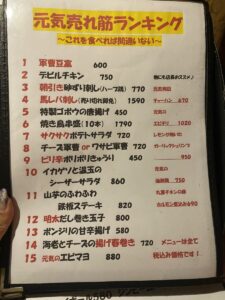 元気売れ筋ランキング
～これを食べれば間違いない～
1 軍曹豆腐 600
2 デビルチキン 750
3 朝引き砂ずり刺し(ハーブ鶏) 770
4 馬レバ刺し(売り切れ御免) 1590
5 特製ゴボウの唐揚げ 450
6 焼き鳥串盛(10本) 1790
7 サクサクポテトサラダ 720
8 チーズ軍曹 or ワサビ軍曹 720
9 ピリ辛ポリポリきゅうり 450
10 イカゲソと温玉の
シーザーサラダ 860
11 山芋のふわふわ
鉄板ステーキ 820
12 明太だし巻き玉子 800
13 ボンジリの甘辛揚げ 590
14 海老とチーズの揚げ春巻き 720
15 元気のエビマヨ 880
他にも店長オススメ♪
エビチリ 1020
メニューは全て
税込み価格です！